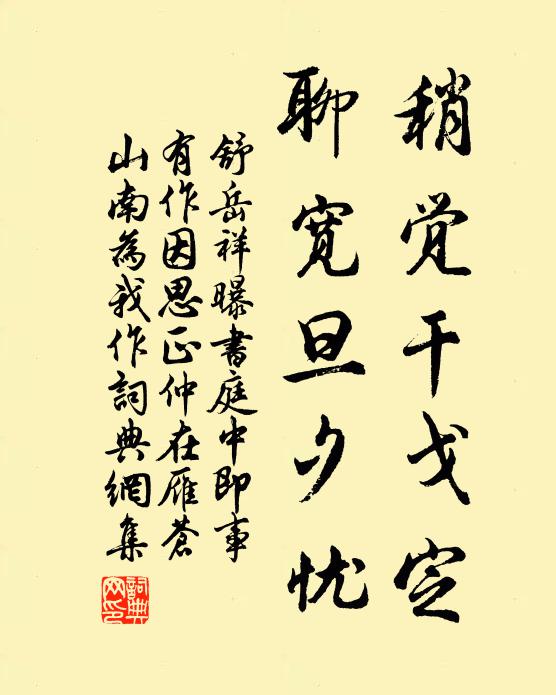 稍觉干戈定
聊宽旦夕忧
舒岳祥曝書庭中即事
有作因思正仲在雁苍
山南為我作詞典網集
詞典網印